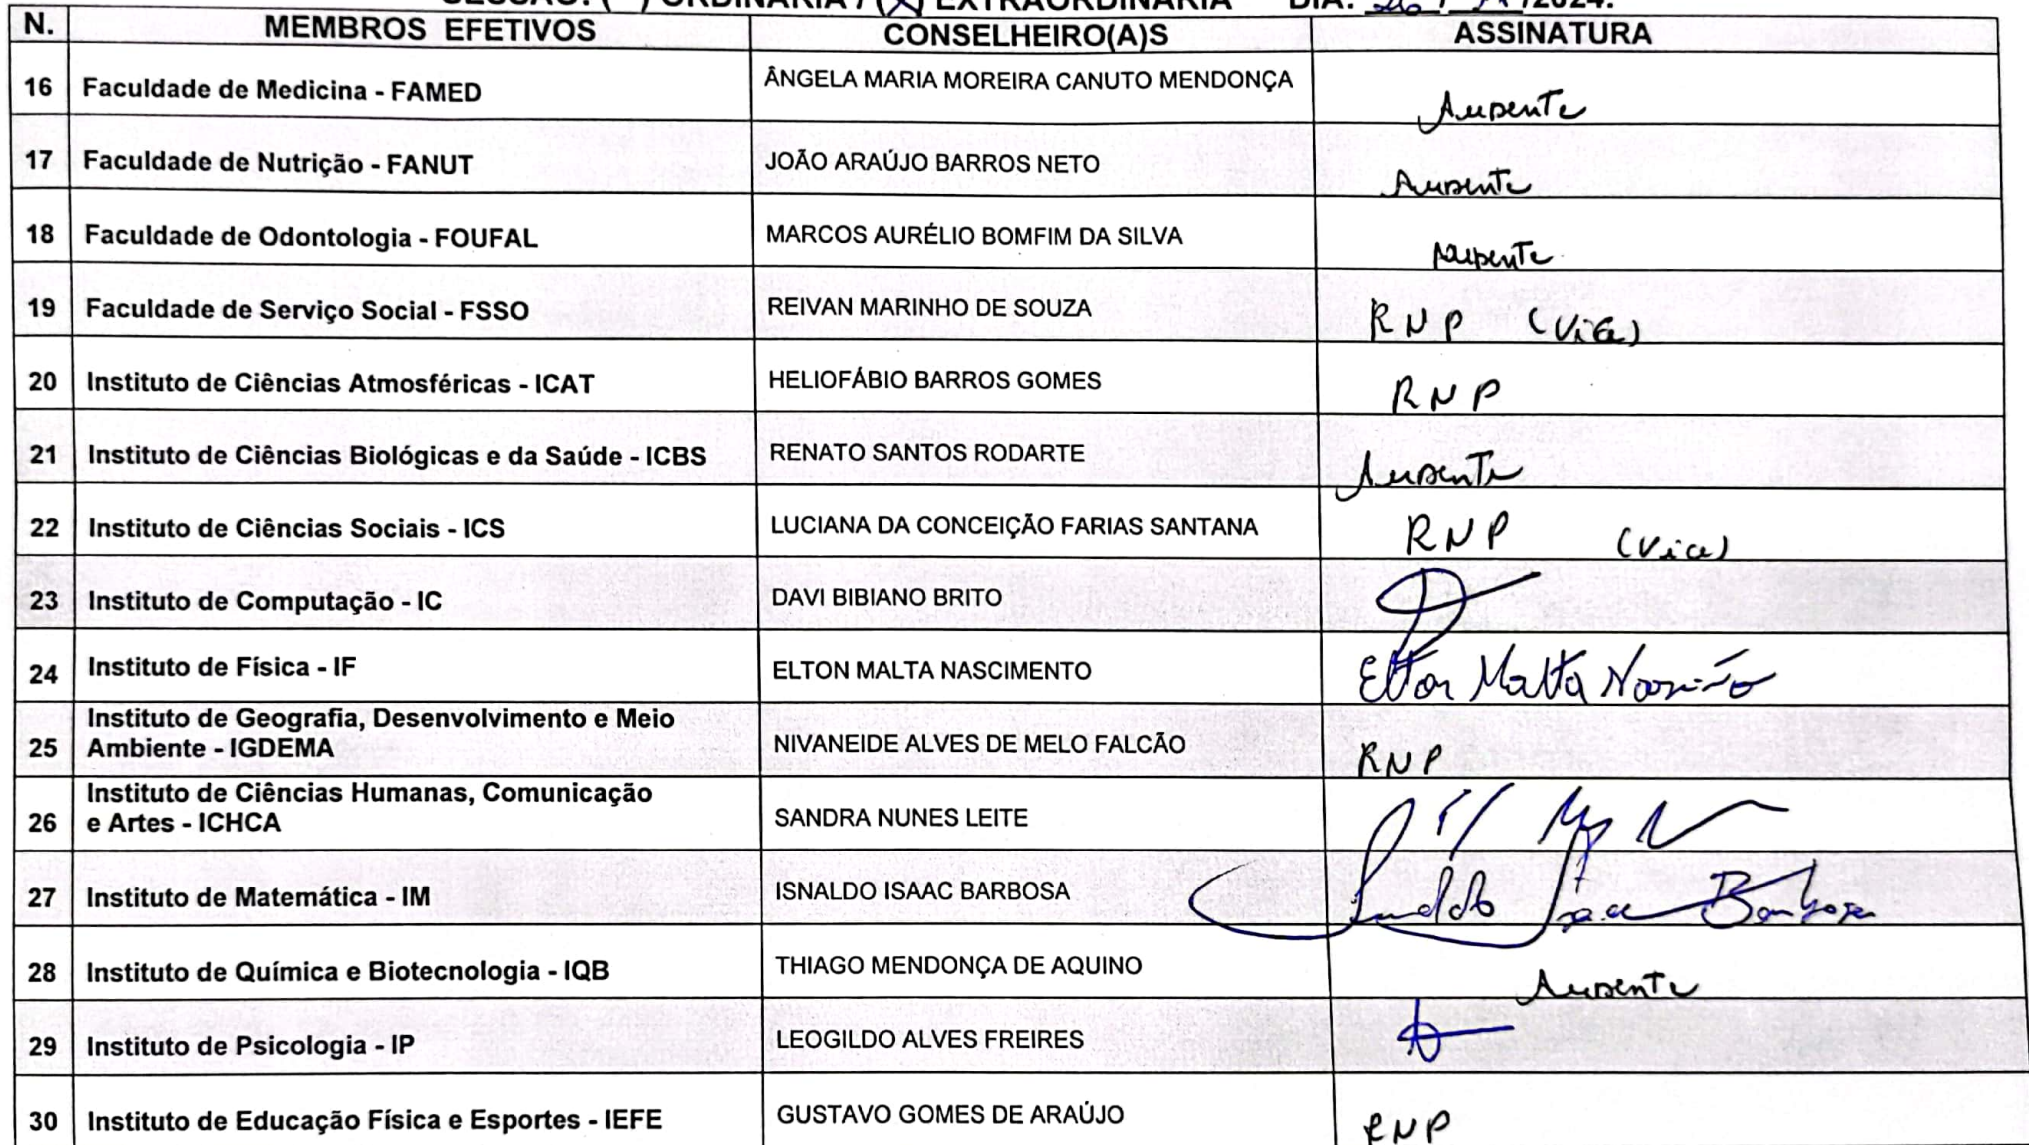 SESSÃO: ( ) ORDINÁRIA / (X) EXTRAORDINÁRIA DIA: /2024.
N. MEMBROS EFETIVOS CONSELHEIRO(A)S ASSINATURA
16 Faculdade de Medicina - FAMED ÂNGELA MARIA MOREIRA CANUTO MENDONÇA Ausente
17 Faculdade de Nutrição - FANUT JOÃO ARAÚJO BARROS NETO Ausente
18 Faculdade de Odontologia - FOUFAL MARCOS AURÉLIO BOMFIM DA SILVA Ausente
19 Faculdade de Serviço Social - FSSO REIVAN MARINHO DE SOUZA RNP (Vice)
20 Instituto de Ciências Atmosféricas - ICAT HELIOFÁBIO BARROS GOMES RNP
21 Instituto de Ciências Biológicas e da Saúde - ICBS RENATO SANTOS RODARTE Ausente
22 Instituto de Ciências Sociais - ICS LUCIANA DA CONCEIÇÃO FARIAS SANTANA RNP (Vice)
23 Instituto de Computação - IC DAVI BIBIANO BRITO
24 Instituto de Física - IF ELTON MALTA NASCIMENTO Elton Malta Nascimento
Instituto de Geografia, Desenvolvimento e Meio
25 Ambiente - IGDEMA NIVANEIDE ALVES DE MELO FALCÃO RNP
Instituto de Ciências Humanas, Comunicação
26 e Artes - ICHCA SANDRA NUNES LEITE
27 Instituto de Matemática - IM ISNALDO ISAAC BARBOSA Isnaldo Isaac Barbosa
28 Instituto de Química e Biotecnologia - IQB THIAGO MENDONÇA DE AQUINO Ausente
29 Instituto de Psicologia - IP LEOGILDO ALVES FREIRES
30 Instituto de Educação Física e Esportes - IEFE GUSTAVO GOMES DE ARAÚJO RNP